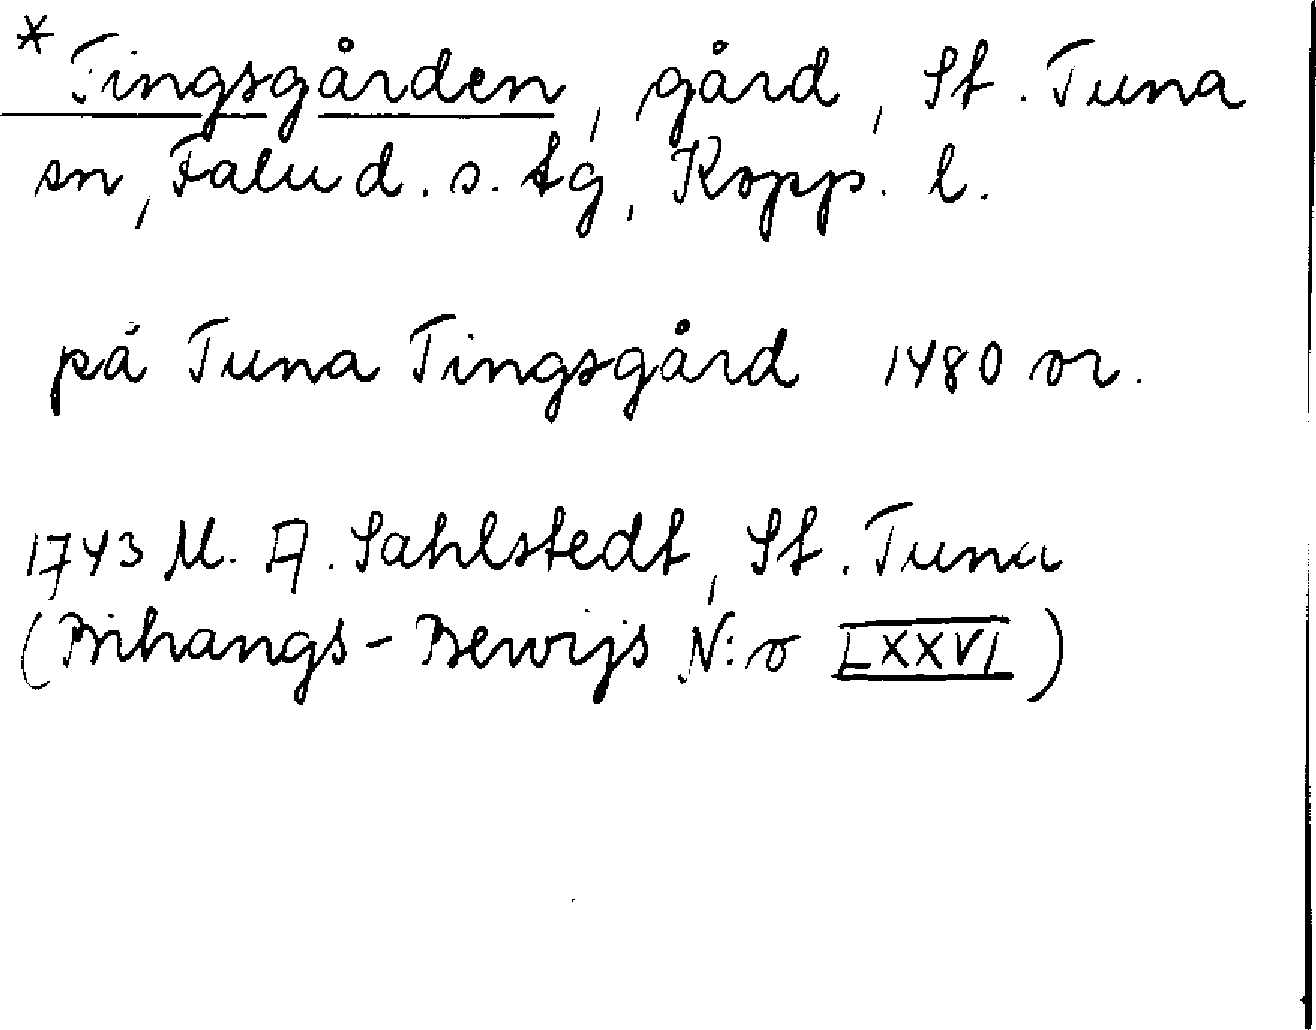 * Tingsgården, gård, St. Tuna
sn, Falu d. s. tg, Kopp. l.
på Tuna Tingsgård 1480 or.
1743 M. A. Sahlstedt, St. Tuna
(Bihangs-Bewijs N:o LXXVI)